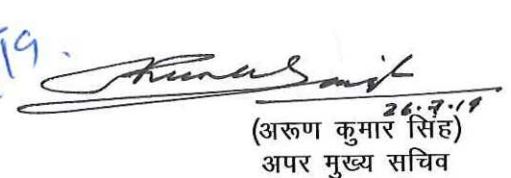 19.
26.7.19
(अरूण कुमार सिंह)
अपर मुख्य सचिव